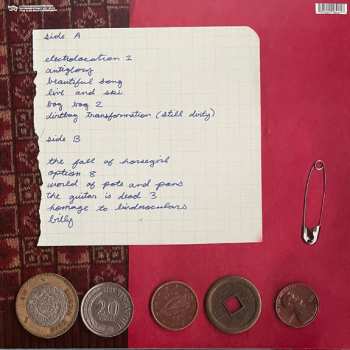 side A
electrolocation 2
antiglory
beautiful song
live and ski
bog bog 2
dirtbag transformation (still dirty)
side B
the fall of horsegirl
option 8
world of pots and pans
the guitar is dead 3
homage to birdnoculars
billy
20